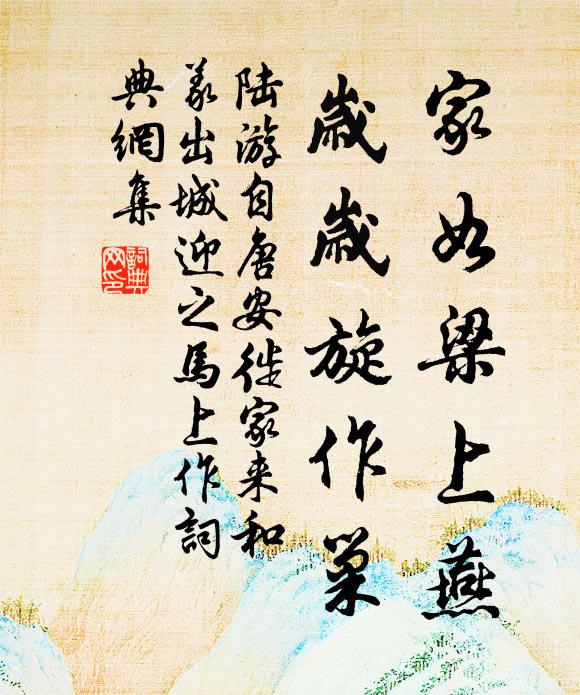 家如梁上燕
歲歲旋作巢
陆游自唐安徙家来和
義出城迎之馬上作詞
典網集
詞典
网印